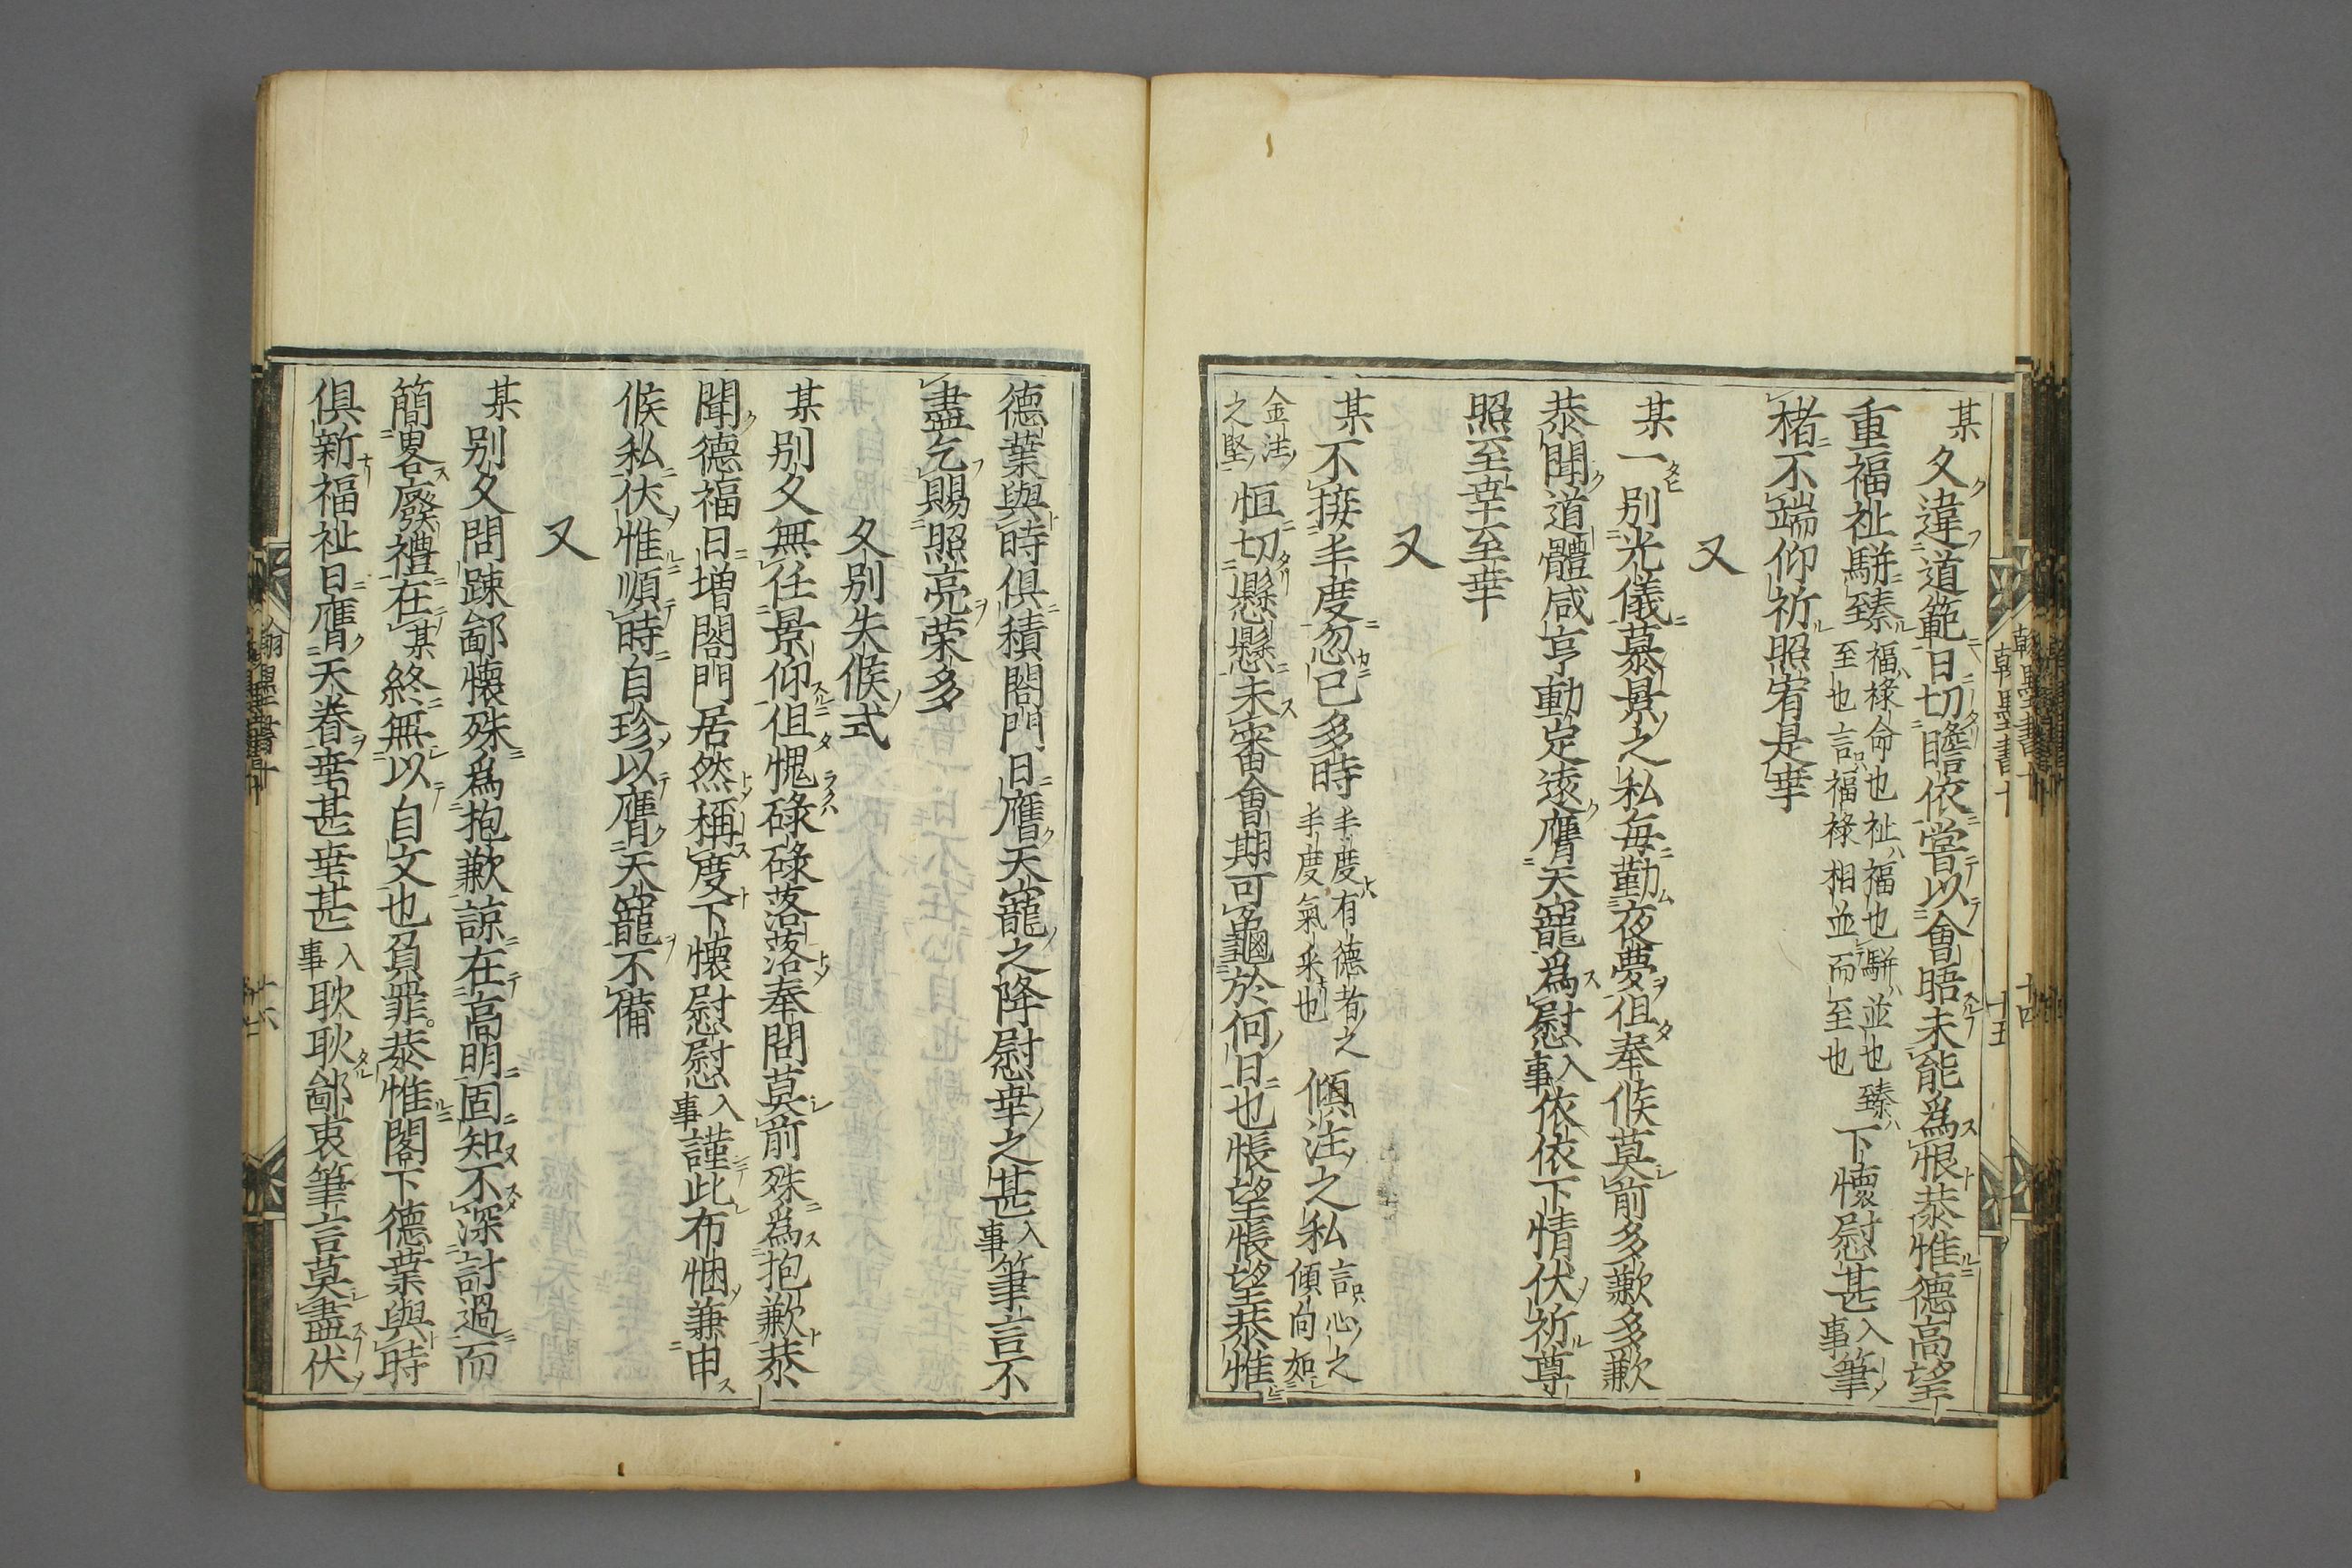 某久違道範日切瞻依嘗以會晤未能為恨恭惟德高望
重福祉駢臻福祿命也祉福也駢並也臻至也言福祿相並而至也下懷慰甚入事筆
楮不端仰祈照宥是幸
又
某一別光儀慕景之私每勤夜夢但奉候莫前多歉多歉
恭聞道體咸亨動定遠膺天寵為慰入事依依下情伏祈尊
照至幸至幸
又
某不接丰度忽已多時丰度有德者之丰度氣采也傾注之私言心之傾向如
金注之堅恒切懸懸未審會期可龜於何日也悵望悵望恭惟
德業與時俱積閤門日膺天寵之降慰幸之甚入事筆言不
盡乞賜照亮荣多
久別失候式
某別久無任景仰但愧碌碌落落奉問莫前殊為抱歉恭
聞德福日增閤門居然稱度下懷慰慰入事謹此布悃兼申
候私伏惟順時自珍以膺天寵不備
又
某別久問踈鄙懷殊為抱歉諒在高明固知不深討過而
簡畧廢禮在某終無以自文也負罪恭惟閣下德業與時
俱新福祉日膺天眷幸甚幸甚入事耿耿鄙衷筆言莫盡伏
翰墨書十
十五
十四
十六